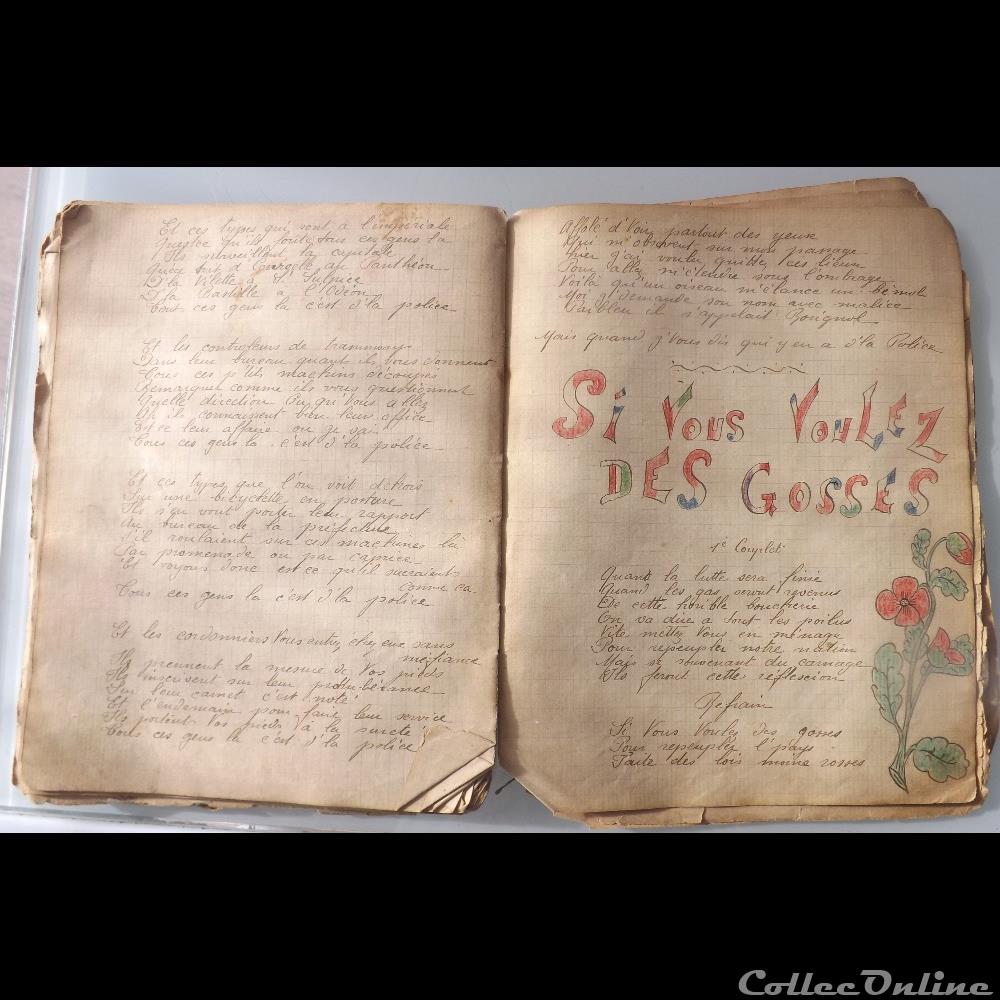 Et ces types qui sont a l'impériale
tous ces gens la
Ils surveillent la capitale
au Panthéon
La Vilette a St Sulpice
La Bastille a l'Odéon
Tout ces gens la c'est d'la police
Et les controleurs de tramways
Dans leur bureau quant ils vous donnent
Tous ces p'tits machins découpés
Remarquez comme ils vous questionnent
Quelle direction Ou qu'vous allez
Ah il connaissent bien leur office
Est ce leur affaire ou je vais
Tous ces gens la c'est d'la police
Et ces types que l'on voit dehors
Sur une bicyclette en posture
Ils s'en vont porter leur rapport
Au bureau de la préfecture
S'il roulaient sur ces machines là
Par promenade ou par caprice
Et voyons donc est ce qu'il sueraient
comme ca
Tous ces gens la c'est d'la police
Et les cordonniers Vous entrez chez eux sans
méfiance
Ils prennent la mesure de Vos pieds
Ils inscrivent sur leur protubérance
Sur leur carnet c'est noté
Et l'endemain pour faire leur service
Ils portent Vos pieds à la sureté
Tous ces gens la c'est d'la police
Affolé d'Voir partout des yeux
Qui m'observent sur mon passage
Hier j'ai voulu quitter ces lieux
Pour aller m'étendre sous l'ombrage
Voilà qu'un oiseau m'élance un bémol
Moi j'demande son nom avec malice
Parbleu il s'appelait Rosignol
Mais quand j'Vous dis qu'y en a d'la Police
Si Vous VouLEZ
DES GOSSES
1e Couplet
Quand la lutte sera finie
Quand les gas seront revenus
De cette horible boucherie
On va dire a tout les poilus
Vite mettez Vous en ménage
Pour repeupler notre nation
Mais se souvenant du carnage
Ils feront cette réflescion
Refrain
Si Vous Voulez des gosses
Pour repeupler l'pays
Faite des lois moins rosses
ColleeOnline